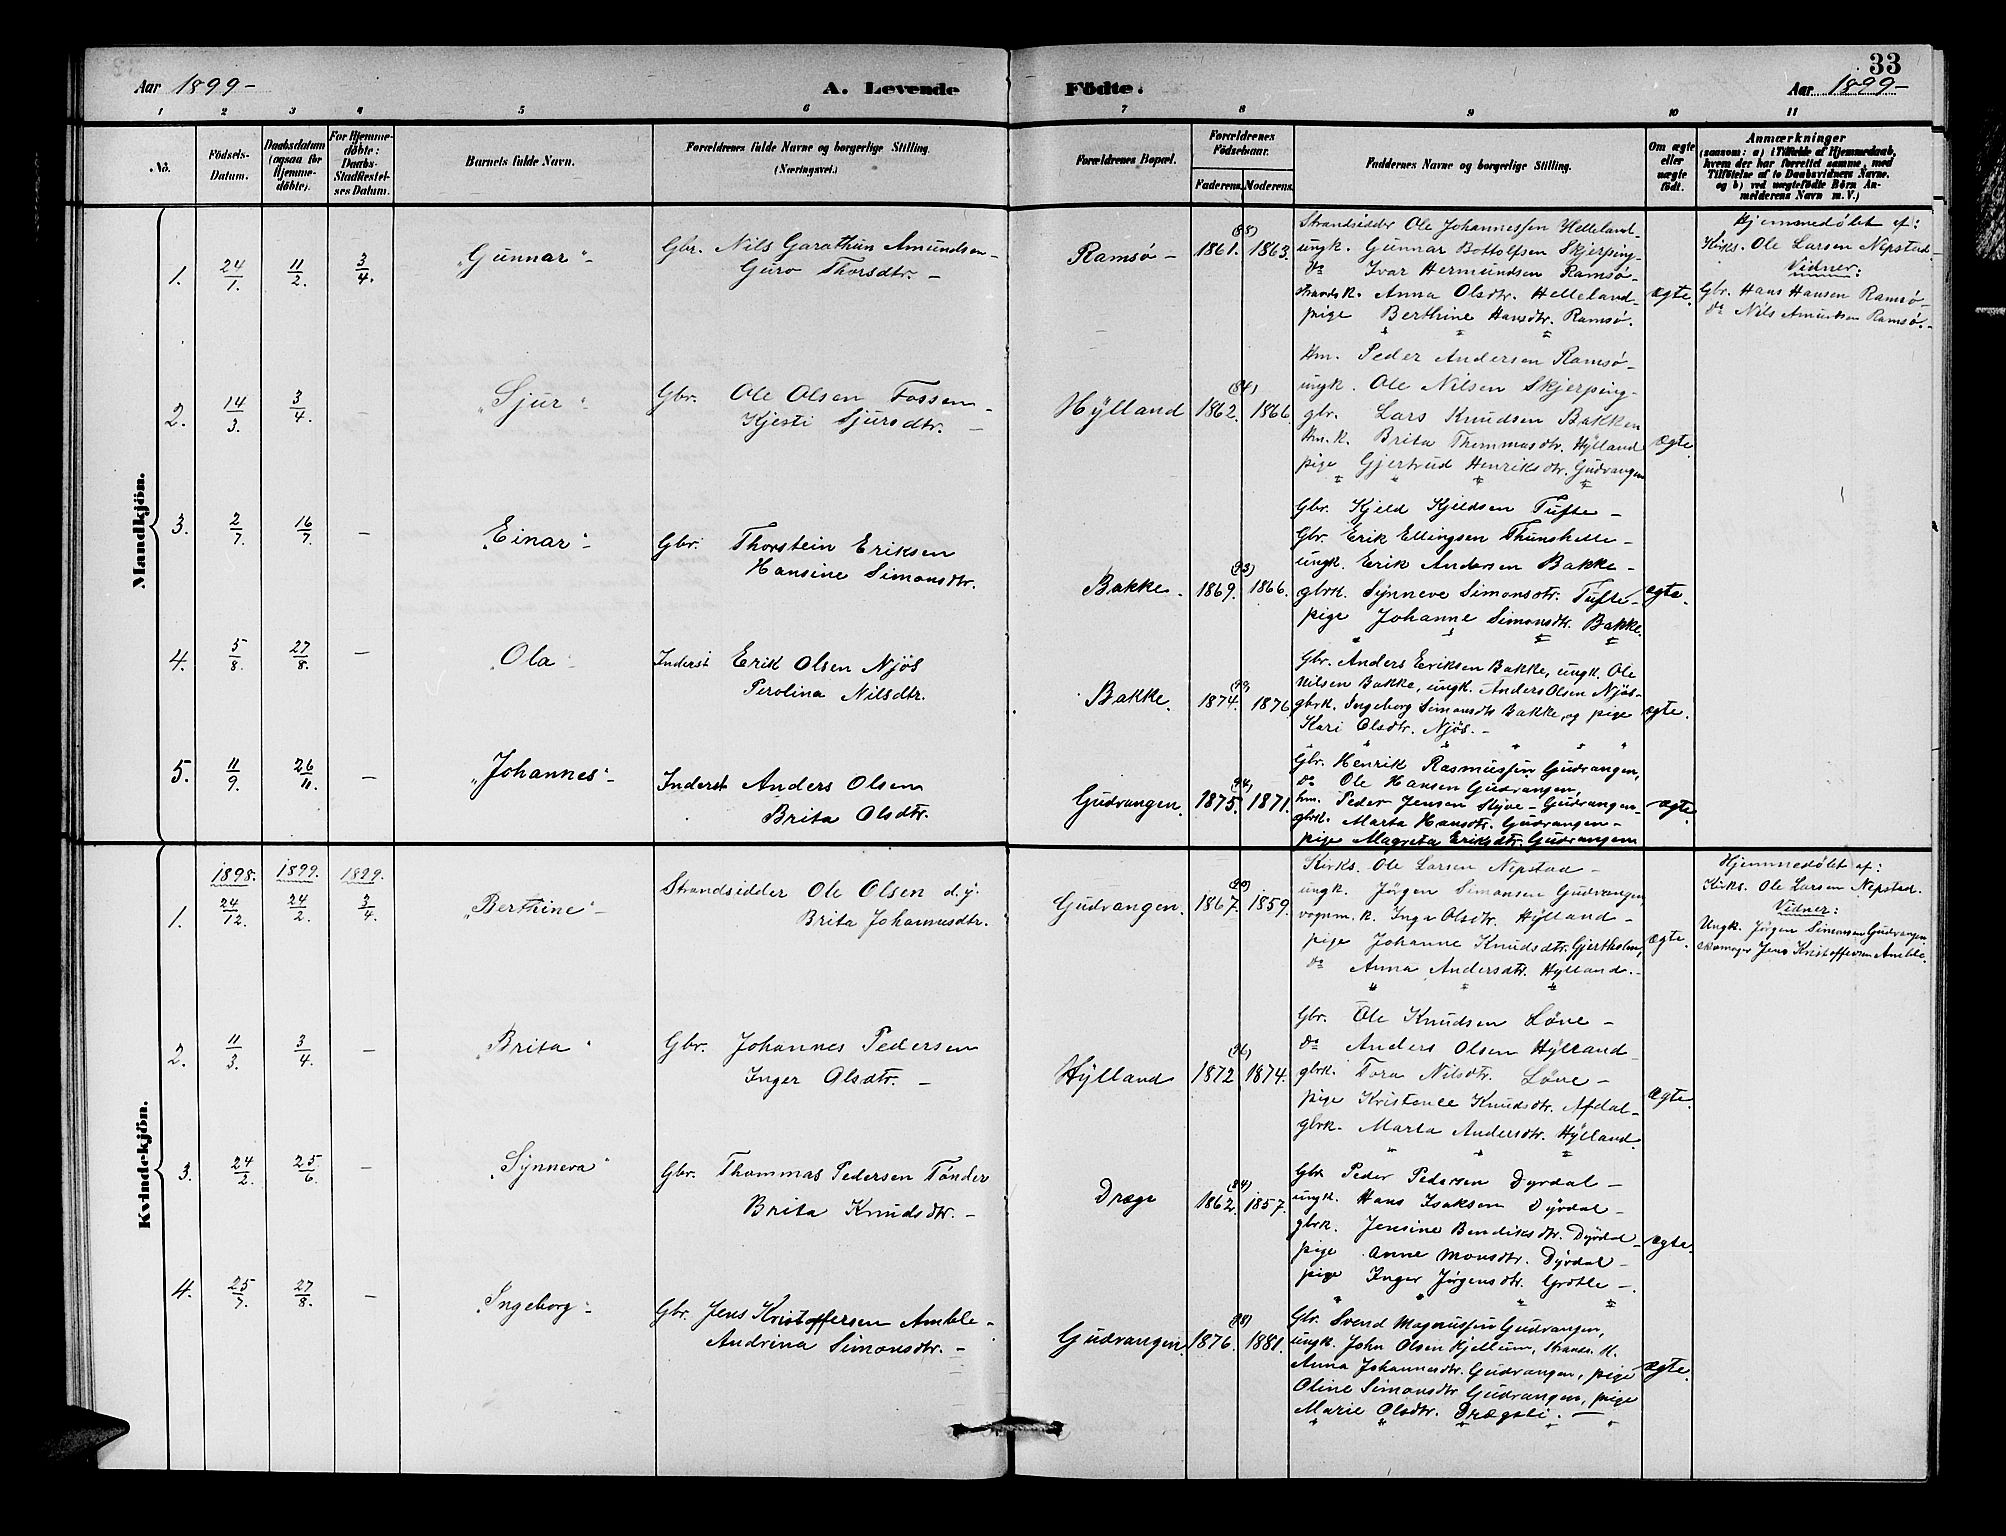 33
Aar 1899-
A. Levende
Födte.
Aar 1899-
1 2 3 4 5 6 7 8 9 10 11
No.
Födsels-
Datum.
Daabsdatum
(ogsaa for
Hjemme-
döbte).
For Hjemme-
döbte:
Daabs-
Stadfæstel-
ses Datum.
Barnets fulde Navn.
Forældrenes fulde Navne og borgerlige Stilling.
(Næringsvei.)
Forældrenes Bopæl.
Forældrenes
Födselsaar.
Faderens. Moderens.
Faddernes Navne og borgerlige Stilling.
Om ægte
eller
uægte
födt.
Anmærkninger
(saasom: a) i Tilfælde af Hjemmedaab,
hvem der har forrettet samme, med
Tilföielse af to Daabsvidners Navne.
og b) ved uægtefödte Börn An-
melderens Navn m. V.)
Mandkjön.
1. 24/1. 11/2. 3/4. "Gunnar"-
Gbr. Nils Garathun Amundsen-
Guro Thorsdtr. -
Ramsø - 1861. (88) 1863.
Strandsidder Ole Johannessen Helleland-
ungk. Gunnar Bottolfsen Skjerping-
do Ivar Hermundsen Ramsø-
strandsk. Anna Olsdtr. Helleland-
pige Berthine Hansdtr. Ramsø.
ægte.
Hjemmedøbt af:
Kirks. Ole Larsen Nepstad-
Vidner:
Gbr. Hans Hansen Ramsø-
do Nils Amundsen Ramsø.-
2. 14/3. 3/4. - "Sjur"-
Gbr. Ole Olsen Fossen-
Kjesti Sjursdtr. -
Hylland 1862. (84) 1866.
Hm. Peder Andersen Ramsø-
ungk. Ole Nilsen Skjerping-
gbr. Lars Knudsen Bakken
Hm. k. Brita Thommasdtr. Hylland
pige Gjertrud Henriksdtr. Gudvangen
ægte.
3. 2/7. 16/7. - "Einar"-
Gbr. Thorstein Eriksen
Hansine Simonsdtr.
Bakke. 1869. (93) 1866.
Gbr. Kjeld Kjeldsen Tufte-
Gbr. Erik Ellingsen Thunshelle-
ungk. Erik Andersen Bakke-
gbrk. Synneve Simonsdtr. Tufte-
pige Johanne Simonsdtr. Bakke.
ægte.
4. 5/8. 27/8. - "Ola"-
Inderst Erik Olsen Njøs
Perolina Nilsdtr.
Bakke. 1874. 1876.
Gbr. Anders Eriksen Bakke, ungk. Ole
Nilsen Bakke, ungk. Anders Olsen Njøs-
gbrk. Ingeborg Simonsdtr Bakke, og pige
Kari Olsdtr. Njøs.-
ægte.
5. 11/9. 26/11. - "Johannes"-
Inderst Anders Olsen
Brita Olsdtr.
Gudvangen. 1875. (94) 1871.
Gbr. Henrik Rasmussen Gudvangen,
do Ole Hansen Gudvangen,
hm. Peder Jensen Styve-Gudvangen-
gbrk. Marta Hansdtr. Gudvangen-
pige Magreta Eriksdtr. Gudvangen
ægte.
Kvindekjön.
1898. 1899. 1899.
1. 24/12. 24/2. 3/4. "Berthine"-
Strandsidder Ole Olsen d.y.
Brita Johannesdtr.
Gudvangen. 1867. (90) 1859.
Kirks. Ole Larsen Nepstad-
ungk. Jørgen Simonsen Gudvangen,
vognm. k. Inga Olsdtr. Hylland-
pige Johanne Knudsdtr. Gjertholm,
do Anna Andersdtr. Hylland.-
ægte.
Hjemmedøbt af:
Kirks. Ole Larsen Nepstad.
Vidner:
Ungk. Jørgen Simonsen Gudvangen
skomager Jens Kristoffersen Amble.
2. 11/3. 3/4. - "Brita"
Gbr. Johannes Pedersen
Inger Olsdtr. -
Hylland 1872 (96) 1874.
Gbr. Ole Knudsen Løne-
do Anders Olsen Hylland-
gbrk. Tora Nilsdtr. Løne-
pige Kristense Knudsdtr. Afdal-
gbrk. Marta Andersdtr. Hylland.
ægte.
3. 24/2. 25/6. - "Synneva"
Gbr. Thommas Pedersen Tønder
Brita Knudsdtr. -
Dræge 1862. (84) 1857.
Gbr. Peder Pedersen Dyrdal-
ungk. Hans Isaksen Dyrdal-
gbrk. Jensine Bendiksdtr. Dyrdal-
pige Anne Monsdtr. Dyrdal-
pige Inger Jørgensdtr. Grotle-.
ægte.
4. 25/7. 27/8. - "Ingeborg"-
Gbr. Jens Kristoffersen Amble-
Andrina Simonsdtr. -
Gudvangen. 1876. (98) 1881.
Gbr. Svend Magnussen Gudvangen,
ungk. John Olsen Kjellum, strands. k.
Anna Johannesdtr. Gudvangen, pige
Oline Simonsdtr Gudvangen, pige
Marie Olsdtr. Drægsli. -
ægte.